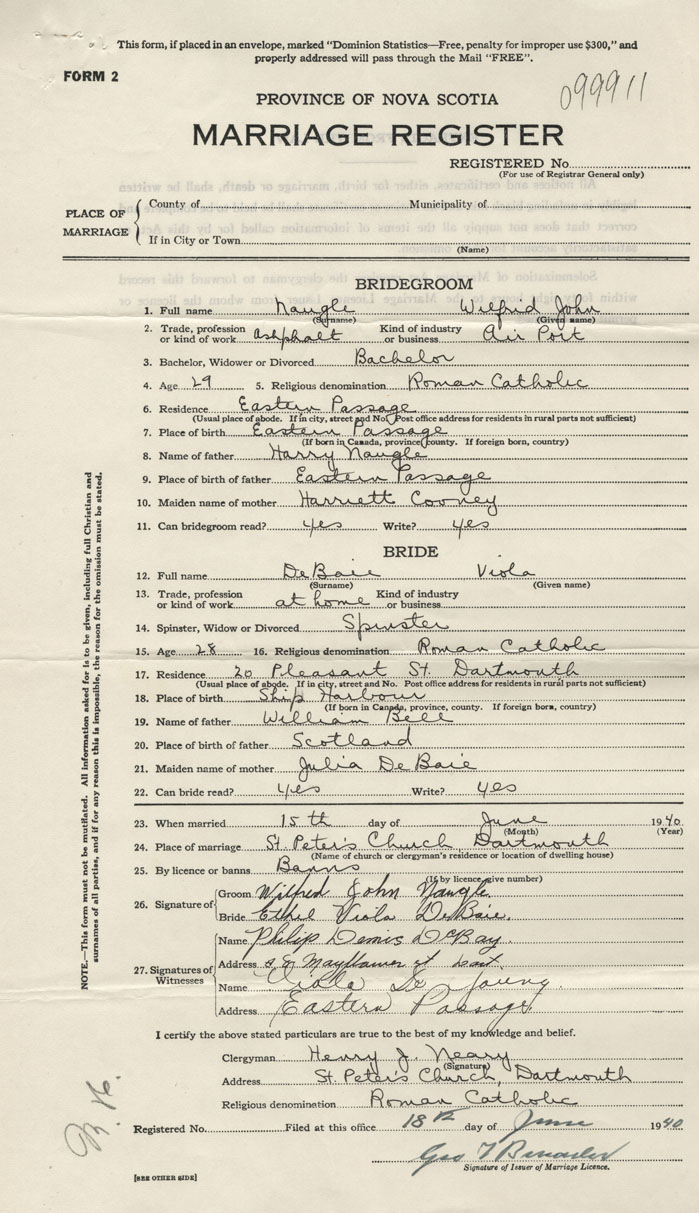 This form, if placed in an envelope, marked "Dominion Statistics—Free, penalty for improper use $300," and
properly addressed will pass through the Mail "FREE".
FORM 2
099911
PROVINCE OF NOVA SCOTIA
MARRIAGE REGISTER
REGISTERED No.
(For use of Registrar General only)
PLACE OF MARRIAGE
County of Municipality of
If in City or Town
(Name)
BRIDEGROOM
1. Full name Naugle Wilfrid John
(Surname) (Given name)
2. Trade, profession or kind of work Ashphalt Kind of industry or business Air Port
3. Bachelor, Widower or Divorced Bachelor
4. Age 29 5. Religious denomination Roman Catholic
6. Residence Eastern Passage
(Usual place of abode. If in city, street and No. Post office address for residents in rural parts not sufficient)
7. Place of birth Eastern Passage
(If born in Canada, province, county. If foreign born, country)
8. Name of father Harry Naugle
9. Place of birth of father Eastern Passage
10. Maiden name of mother Harriett Cooney
11. Can bridegroom read? yes Write? yes
BRIDE
12. Full name DeBaie Viola
(Surname) (Given name)
13. Trade, profession or kind of work at home Kind of industry or business
14. Spinster, Widow or Divorced Spinster
15. Age 28 16. Religious denomination Roman Catholic
17. Residence 20 Pleasant St. Dartmouth
(Usual place of abode. If in city, street and No. Post office address for residents in rural parts not sufficient)
18. Place of birth Ship Harbour
(If born in Canada, province, county. If foreign born, country)
19. Name of father William Bell
20. Place of birth of father Scotland
21. Maiden name of mother Julia DeBaie
22. Can bride read? yes Write? yes
23. When married 15th day of June 1940
(Month) (Year)
24. Place of marriage St. Peter's Church, Dartmouth
(Name of church or clergyman's residence or location of dwelling house)
25. By licence or banns Banns
(If by licence, give number)
26. Signature of
Groom Wilfred John Naugle
Bride Ethel Viola DeBaie.
27. Signatures of Witnesses
Name Philip Denis DeBay
Address Mayflower st Dart.
Name Viola De Young
Address Eastern Passage
I certify the above stated particulars are true to the best of my knowledge and belief.
Clergyman Henry J. Neary
(Signature)
Address St. Peter's Church, Dartmouth
Religious denomination Roman Catholic
Registered No. Filed at this office 18th day of June 1940
Geo T
Signature of Issuer of Marriage Licence.
[SEE OTHER SIDE]
NOTE.—This form must not be mutilated. All information asked for is to be given, including full Christian and
surnames of all parties, and if for any reason this is impossible, the reason for the omission must be stated.